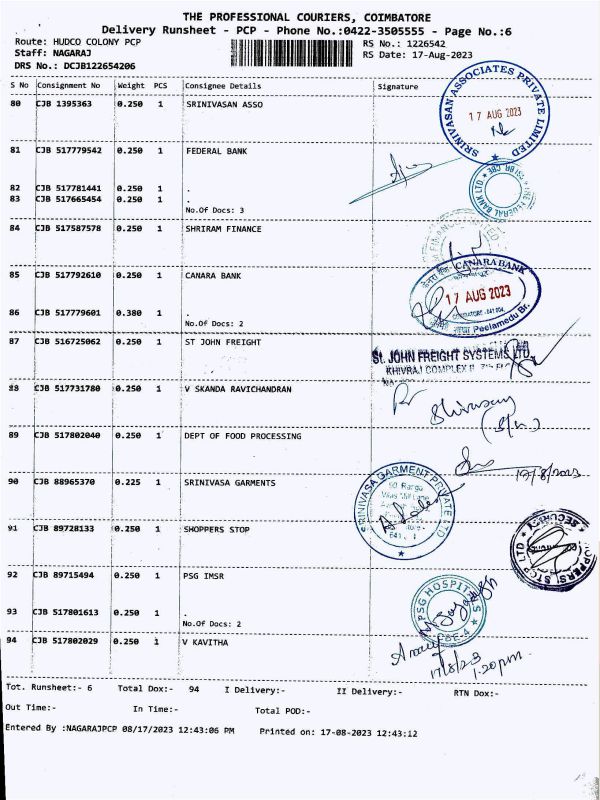 THE PROFESSIONAL COURIERS, COIMBATORE
Delivery Runsheet - PCP - Phone No.:0422-3505555 - Page No.:6
Route: HUDCO COLONY PCP
RS No.: 1226542
Staff: NAGARAJ
RS Date: 17-Aug-2023
DRS No.: DCJB122654206
S No Consignment No Weight PCS Consignee Details Signature
80 CJB 1395363 0.250 1 SRINIVASAN ASSO
SRINIVASAN ASSOCIATES PRIVATE LIMITED
17 AUG 2023
81 CJB 517779542 0.250 1 FEDERAL BANK
82 CJB 517781441 0.250 1 .
83 CJB 517665454 0.250 1 .
No.Of Docs: 3
FEDERAL BANK LTD
84 CJB 517587578 0.250 1 SHRIRAM FINANCE
85 CJB 517792610 0.250 1 CANARA BANK
CANARA BANK
17 AUG 2023
Peelamedu Br.
86 CJB 517779601 0.380 1 .
No.Of Docs: 2
87 CJB 516725062 0.250 1 ST JOHN FREIGHT
St. JOHN FREIGHT SYSTEMS LTD.
KHIVRAJ COMPLEX II
88 CJB 517731780 0.250 1 V SKANDA RAVICHANDRAN
89 CJB 517802040 0.250 1 DEPT OF FOOD PROCESSING
17/8/2023
90 CJB 88965370 0.225 1 SRINIVASA GARMENTS
SRINIVASA GARMENT PRIVATE LTD
91 CJB 89728133 0.250 1 SHOPPERS STOP
SHOPPERS STOP LTD
SECURITY
92 CJB 89715494 0.250 1 PSG IMSR
PSG HOSPITALS
CBE-4
93 CJB 517801613 0.250 1 .
No.Of Docs: 2
94 CJB 517802029 0.250 1 V KAVITHA
17/8/23
1.20pm.
Tot. Runsheet:- 6 Total Dox:- 94 I Delivery:- II Delivery:- RTN Dox:-
Out Time:- In Time:- Total POD:-
Entered By :NAGARAJPCP 08/17/2023 12:43:06 PM Printed on: 17-08-2023 12:43:12